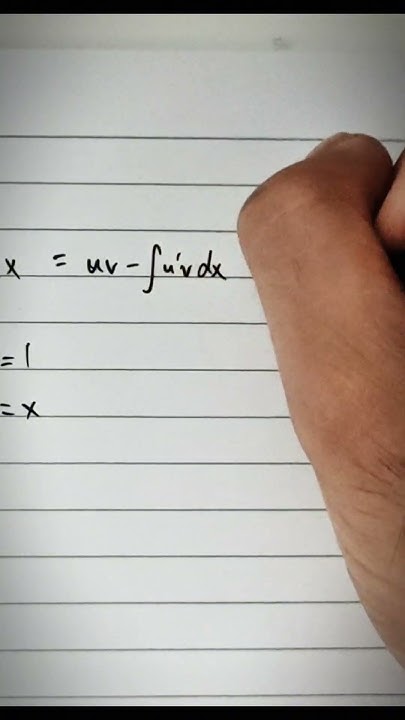 x = uv - ∫u'v dx
= 1
= x